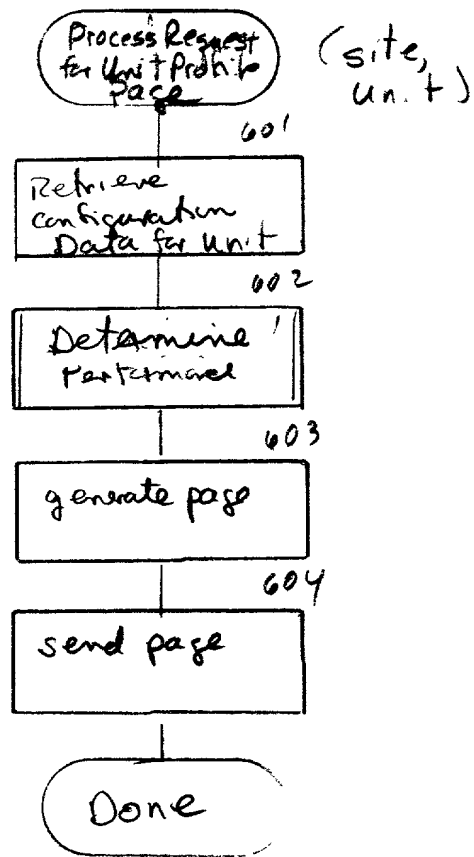 Process Request
for Unit Profile
Page
(site,
unit)
601
Retrieve
configuration
Data for unit
602
Determine
Performance
603
generate page
604
send page
Done